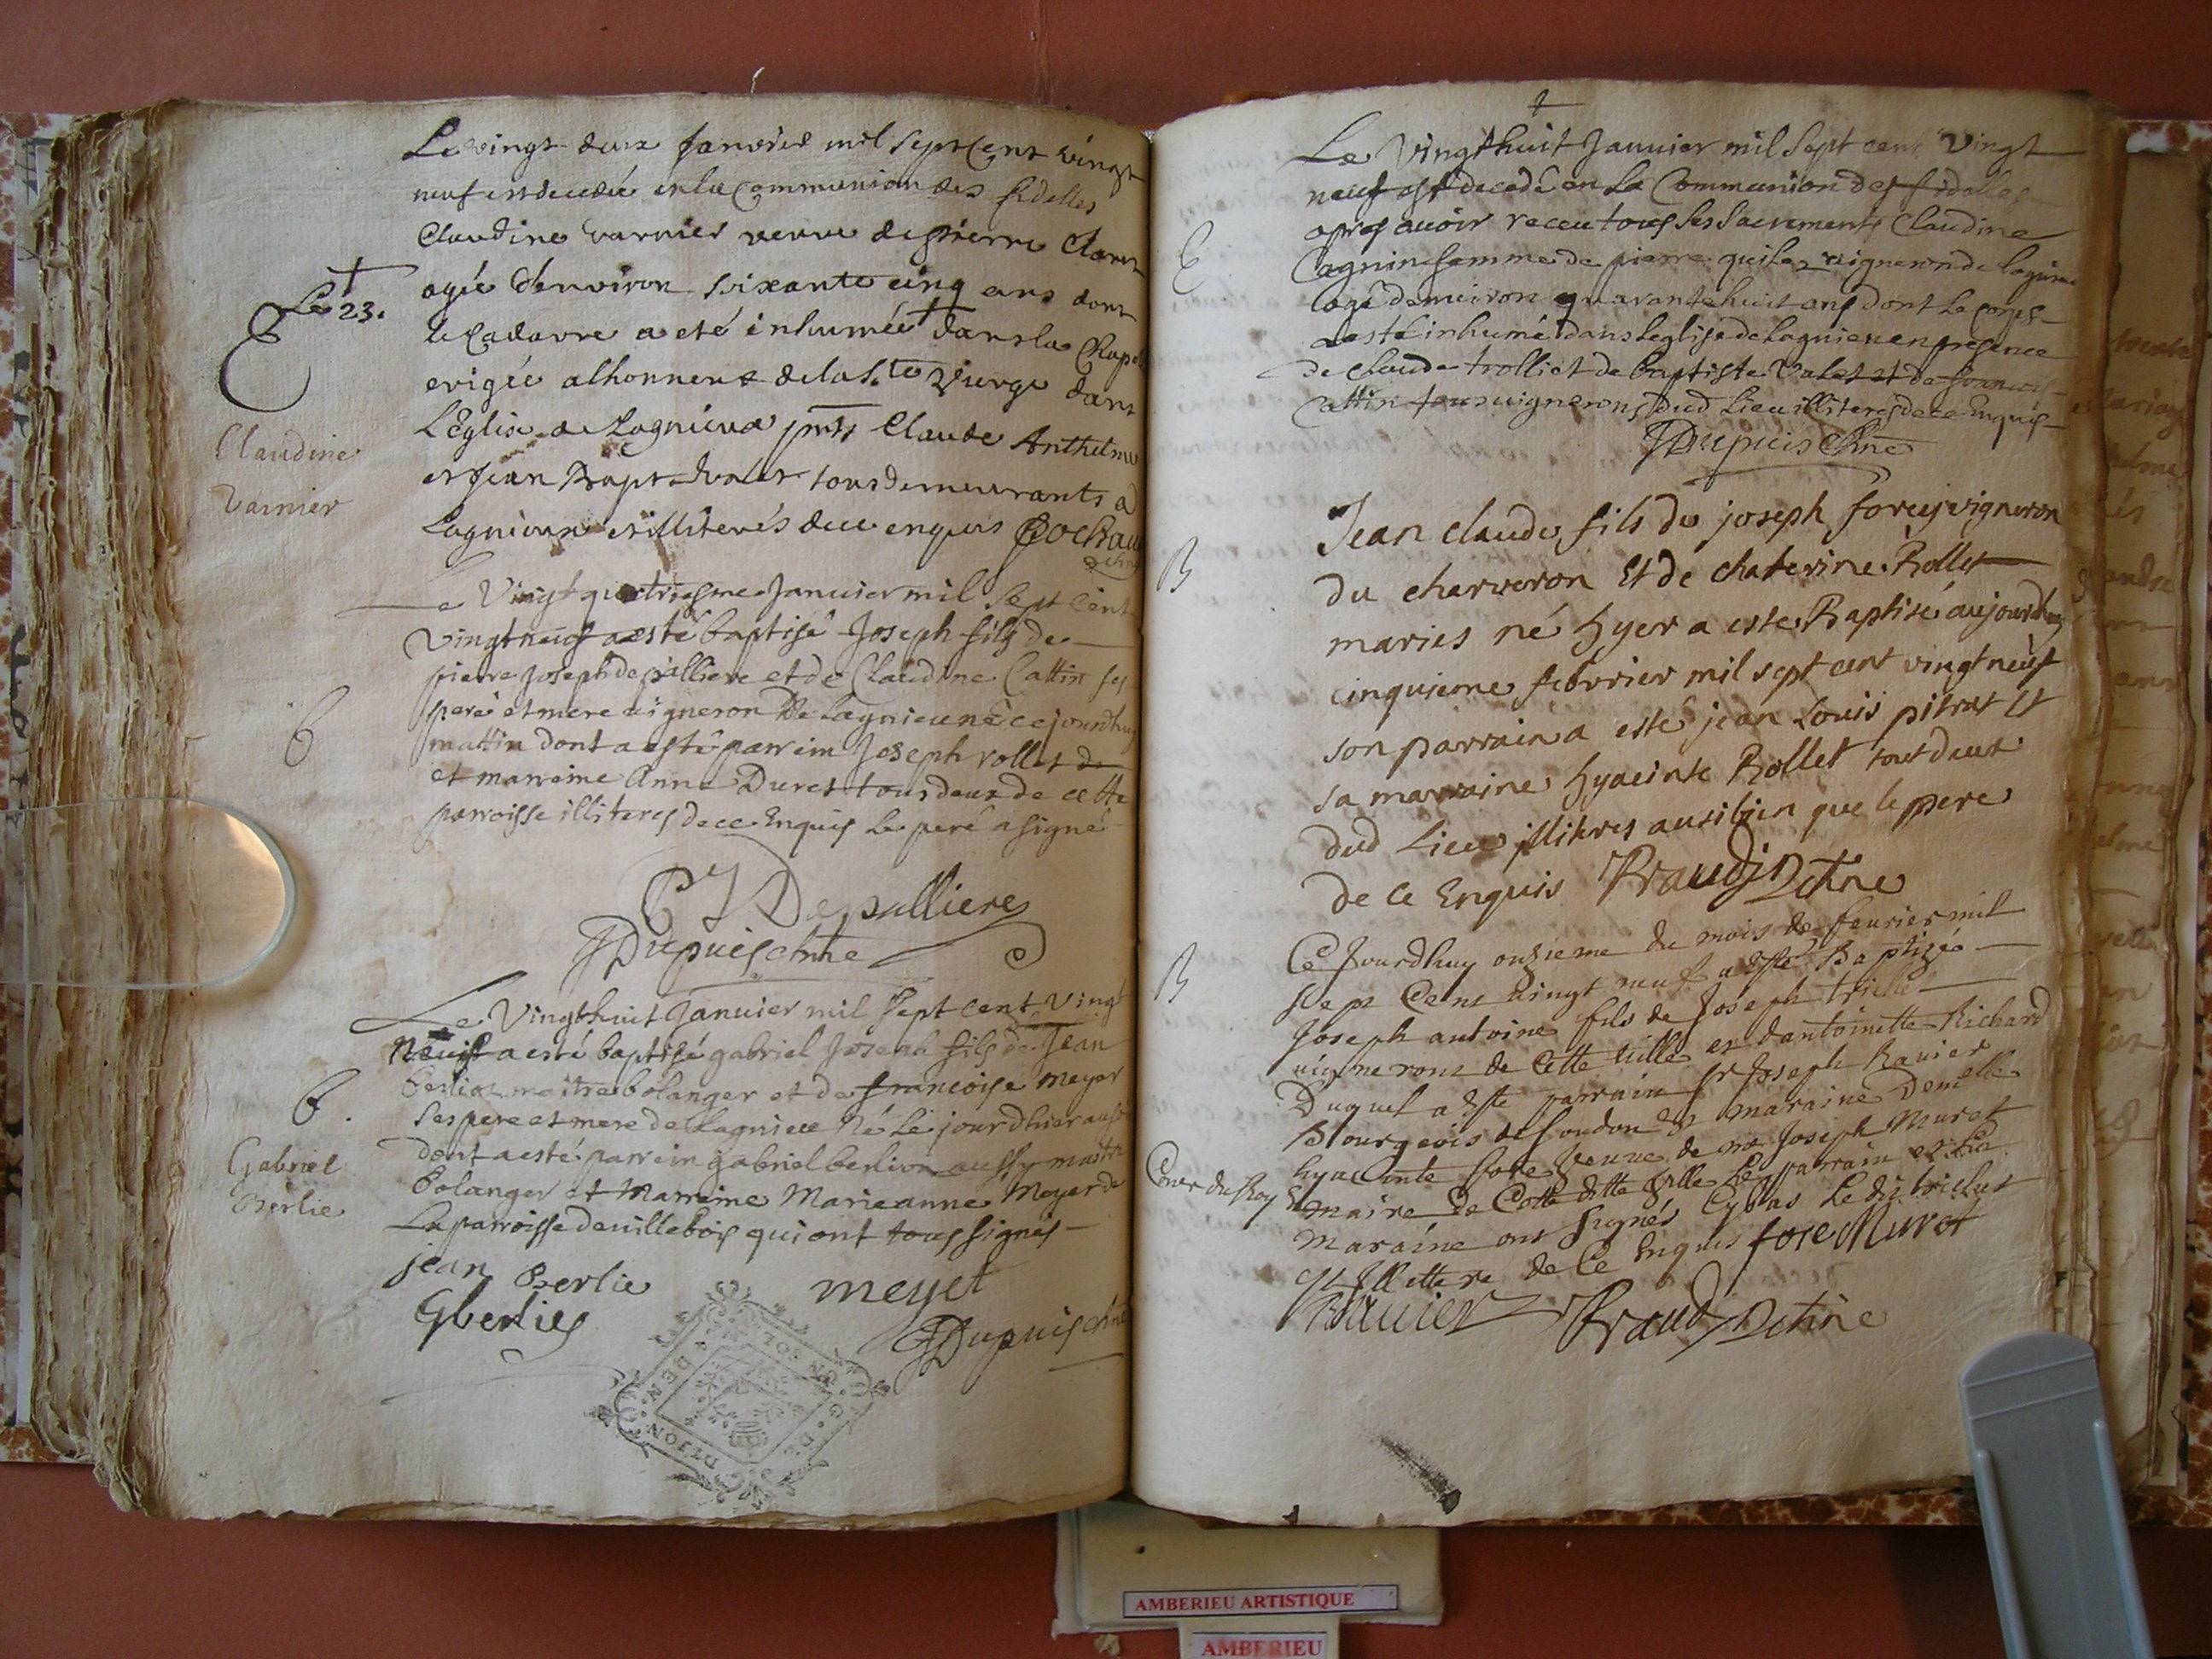 Le vingt deux Janvier mil sept cent vingt
neuf est decedée en la Communion des fidelles
Claudine varnier veuve de pierre Claret
agée d'environ soixante cinq ans dont
Le 23.
le Cadavre a eté inhumée dans la Chapel
erigée a lhonneur de la Ste Vierge dans
L'Eglise de Lagnieux pnts Claude Anthelme
Claudine
varnier
et Jean Bapt Valet tous demeurants a
Lagnieux et illiterés de ce enquis Cochau
Le Vingt quatriesme Janvier mil Sept Cent
Vingt neuf a esté baptisé Joseph fils de
pierre Joseph depalliere et de Claudine Cattin ses
pere et mere vigneron De Lagnieu né cejourdhuy
B
mattin dont a esté parrein Joseph rollet de
et marreine Anne Duret tous deux de cette
parroisse illiteres de ce Enquis Le peré a signé
PJ Depalliere
JDupuis chne
Le Vingthuit Janvier mil Sept cent Vingt
Neuf a esté baptisé gabriel Joseph fils de Jean
berlion maitre bolanger et de francoise meyer
B.
Ses pere et mere de Lagnieu Né Le jour dhier aussi
Gabriel
Berlie
dont a esté parrein gabriel berlion aussy maitre
bolanger et Marreine Marieanne Meyer de
La parroisse de villebois qui ont tous signés
jean Berlie meyet
Gberlies
JDupuis chne
DIJON
Le Vingthuit Janvier mil Sept cent Vingt
neuf est decedé en La Communion des fidelles
E
apres avoir receu tous ses Sacrements Claudine
Cagnin femme de pierre vigneron de Lagnieu
agé demviron quarantehuit ans dont Le corps
a esté inhumé dans Leglise de Lagnieu en presence
de Claude trolliet de baptiste Valet et de francois
Cattin tous vignerons dud Lieu illiteres de ce Enquis
JDupuis Chne
Jean claude fils de joseph forey vigneron
B
du charveron Et de chaterine Rollet
maries né hyer a este Baptisé aujourdhuy
cinquieme febvrier mil sept cent vingt neuf
son parrain a esté jean Louis pitrat Et
sa marraine hyacinte Rollet tout deux
dud Lieu illiteres ausibien que le pere
de ce Enquis Praudz chne
Ce Jourdhuy onzieme du mois de feurier mil
B
Sept Cent vingt neuf a este Baptizé
Joseph antoine fils de Joseph
vigneront de Cette ville et dantoinette Richard
Duquel a este parrain Sr Joseph Ravier
Bourgeois de Loudon et maraine Demelle
hyacinte fore veuve de mr Joseph Muret
Coner du Roy &
maire de Cette ditte ville Le parrain et La
maraine ont signés
et Illettere de Ce Enquis fore Muret
Ravier Praudz chne
AMBERIEU ARTISTIQUE
AMBERIEU